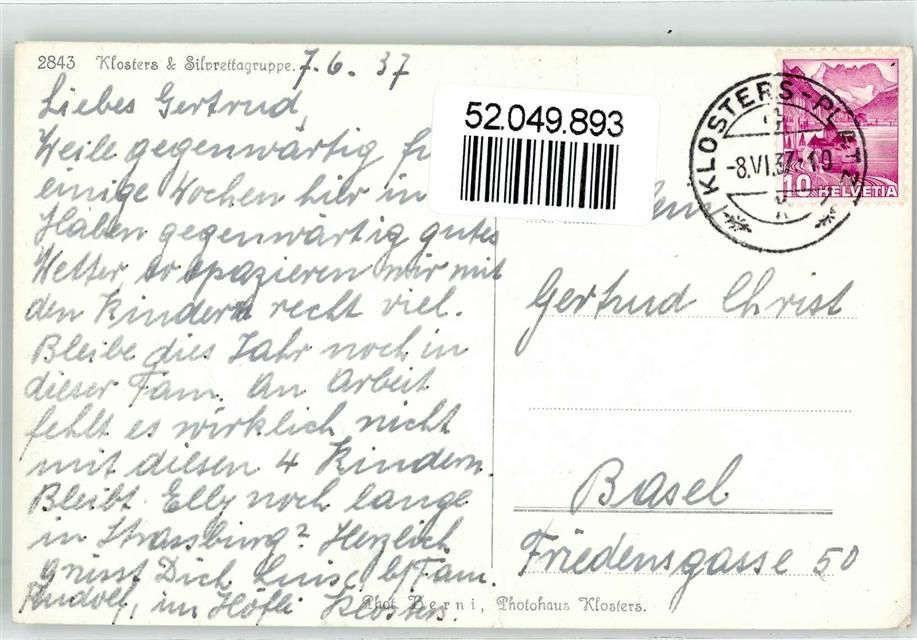 2843 Klosters & Silvrettagruppe.
7.6.37
Liebes Gertrud,
Weile gegenwärtig
einige Wochen hier in
Haben gegenwärtig gutes
Wetter so spazieren wir mit
den Kindern recht viel.
Bleibe dies Jahr noch in
dieser Fam. An Arbeit
fehlt es wirklich nicht
mit diesen 4 Kindern.
Bleibt Elly noch lange
in Strassburg? Herzlich
grüsst Dich Luise b/Fam.
Rudolf, im Höfli Klosters.
52.049.893
KLOSTERS-PLATZ
-8.VI.37-19
10 HELVETIA
Gertrud Christ
Basel
Friedensgasse 50
Phot. Berni, Photohaus Klosters.